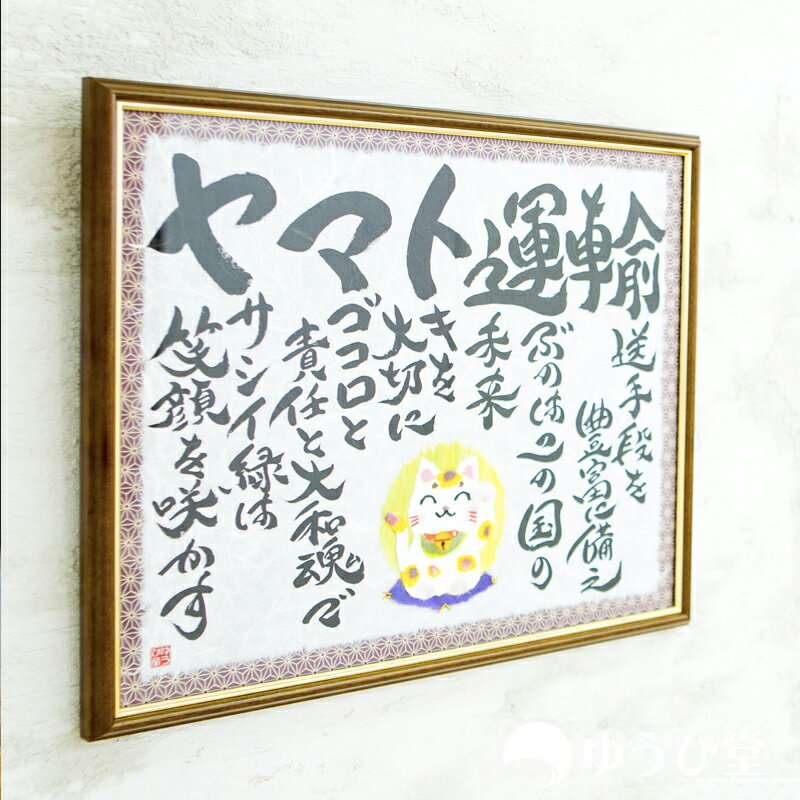 ヤマト運輸
送手段を
豊富に備え
ぶのはこの国の
未来
キを
大切に
ゴコロと
責任と大和魂で
サシイ縁は
笑顔を咲かす
ゆうひ堂